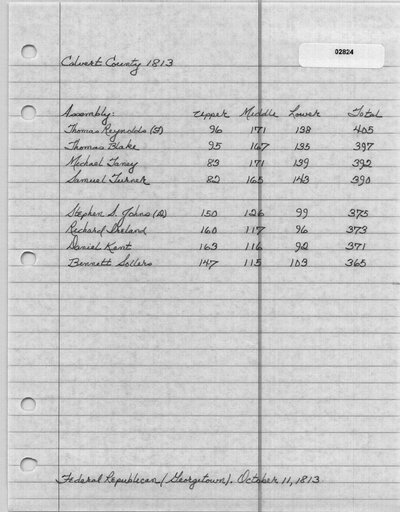 02824
Calvert County 1813
Assembly: Upper Middle Lower Total
Thomas Reynolds (F) 96 171 138 405
Thomas Blake 95 167 135 397
Michael Taney 83 171 139 392
Samuel Turner 82 165 143 390
Stephen S. Johns (R) 150 126 99 375
Richard Ireland 160 117 96 373
Daniel Kent 163 116 92 371
Bennett Sollers 147 115 103 365
Federal Republican (Georgetown). October 11, 1813